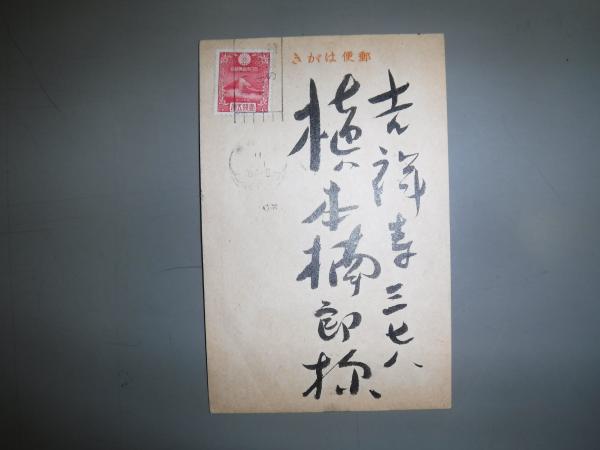 郵便はがき
吉祥寺三七八
槙本楠郎様